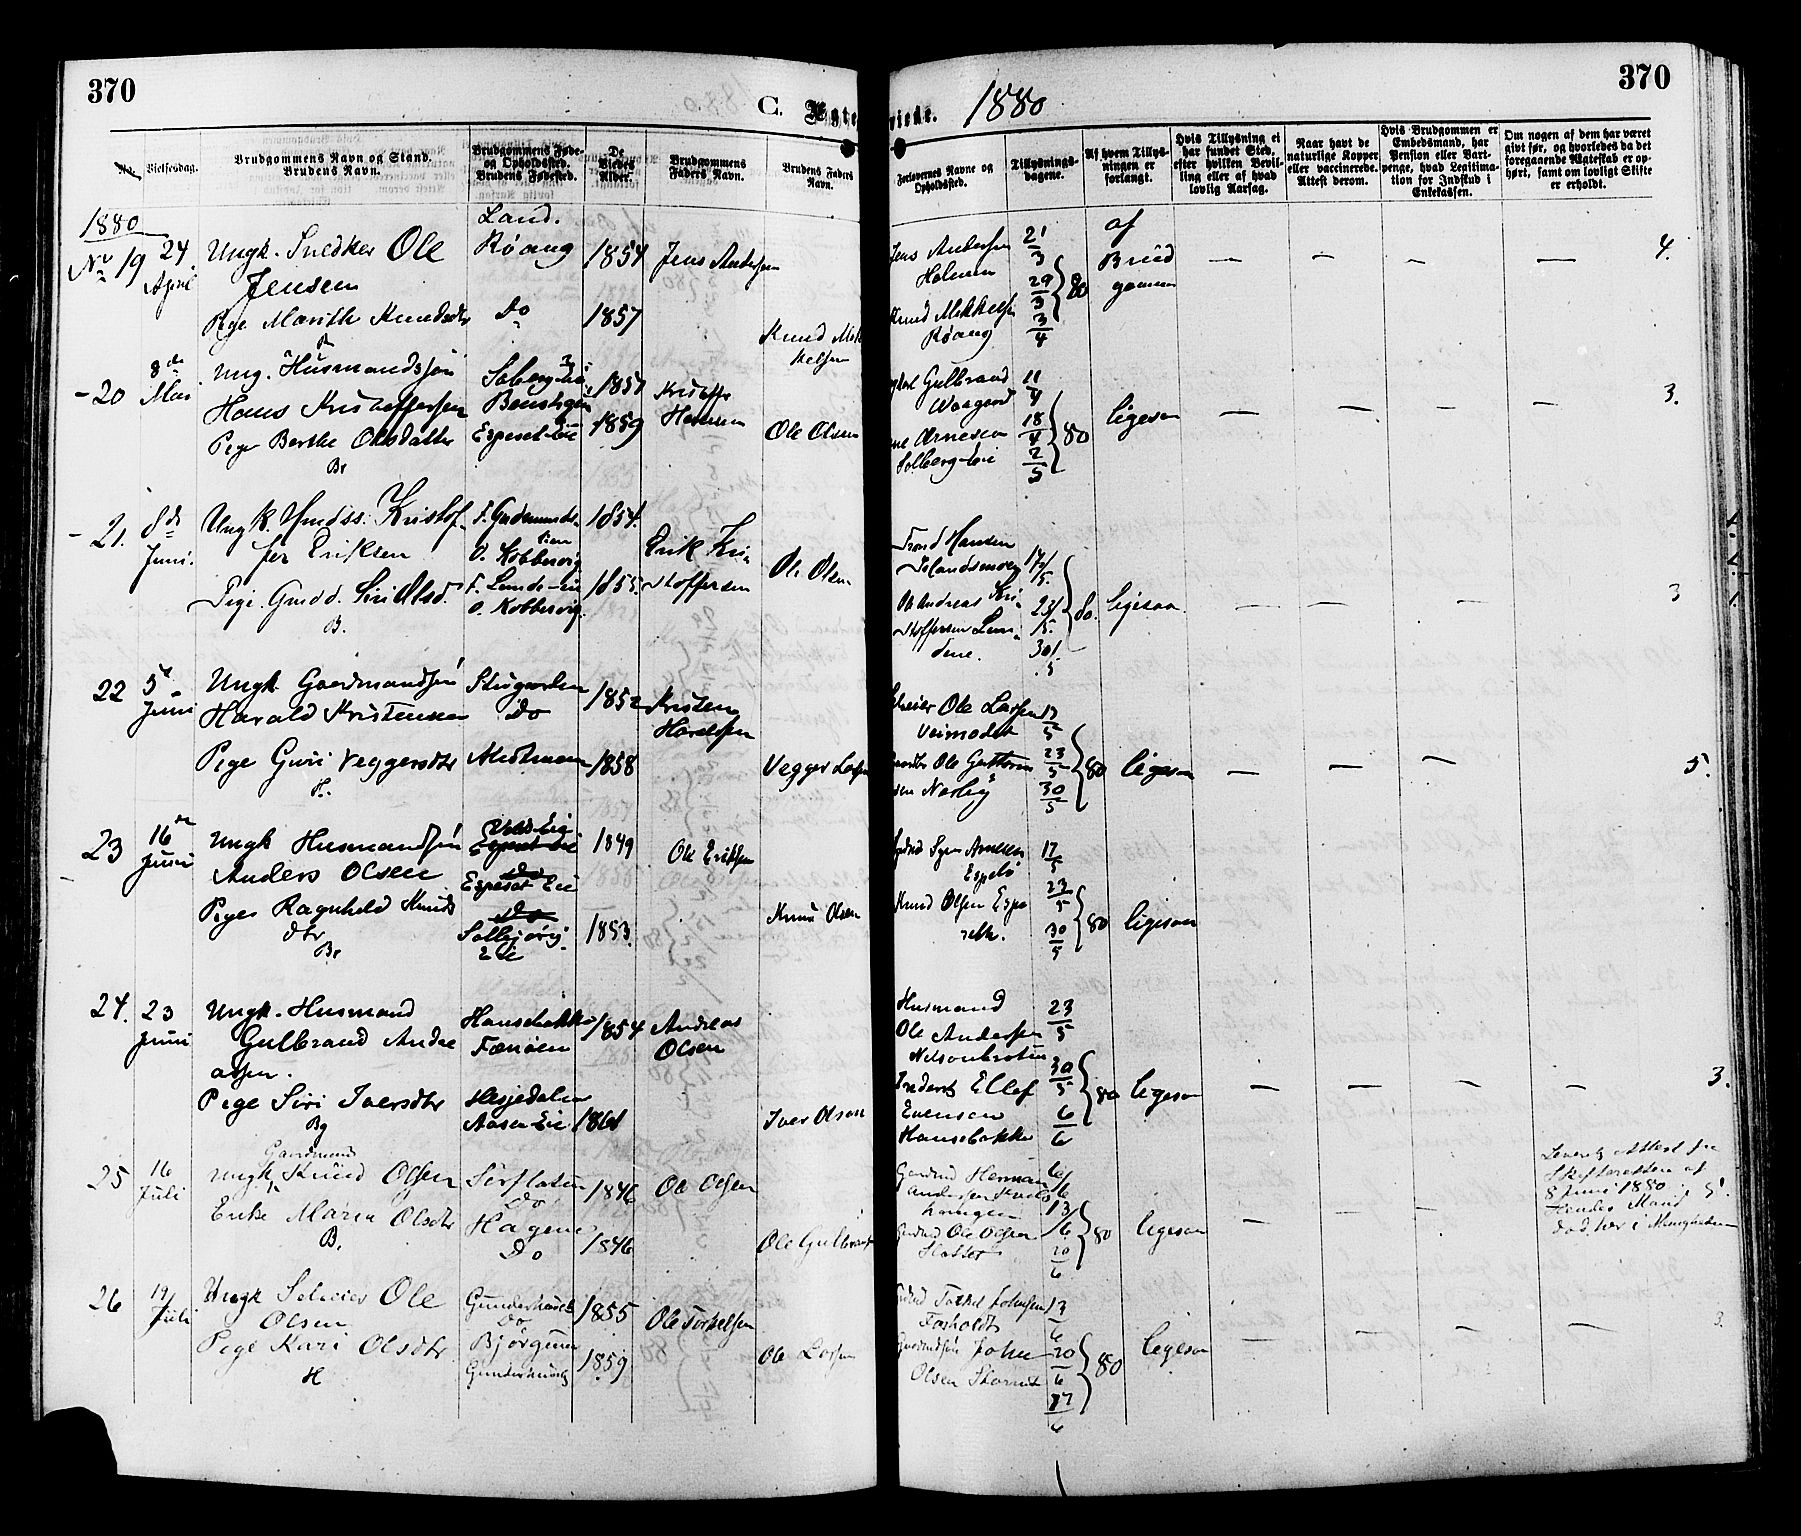 370
C. Egte
viede. 1880
370
No.
Vielsesdag.
Brudgommens Navn og Stand.
Brudens Navn.
Brudgommens Føde-
og Opholdssted.
Brudens Fødested.
De
Viedes
Alder.
Brudgommens
Faders Navn.
Brudens Faders
Navn.
Forlovernes Navne og
Opholdssted.
Tillysnings-
dagene.
Af hvem Tillys-
ningen er
forlangt.
Hvis Tillysning ei
har fundet Sted,
efter hvilken Bevil-
ling eller af hvad
lovlig Aarsag.
Naar havt de
naturlige Kopper
eller vaccinerede.
Attest derom.
Hvis Brudgommen er
Embedsmand, har
Pension eller Vart-
penge, hvad Legitima-
tion for Indskud i
Enkekassen.
Om nogen af dem har været
givt før, og hvorledes da det
foregaaende Ægteskab er op-
hørt, samt om lovligt Skifte
er erholdt.
1880
No 19
24
April
Ungk. Snedker Ole
Jensen
Pige Marith Knudsdtr
Land.
Røang
Do
1854
1857
Jens Andersen
Knud Mik
kelsen
Jens Andersen
Holmen
Knud Mikkelsen
Røang
21/3
29/3
3/4
80
af
Brud
gommen
4.
- 20
8de
Mai
Ung. Husmandssøn
Hans Kristoffersen
Pige Berthe Olsdatter
Br
Solberg-Eie
Espeset-Eie
1859
Kristoffer
Hansen
Ole Olsen
Gulbrand
Waagard
Arnesen
Solberg-Eie
11/4
18/4
2/5
80
ligesaa
3.
- 21.
8de
Juni.
Ungk. Hmdss. Kristof-
fer Eriksen
Pige. Gmdd. Siri Olsd.
B.
F. Gudmunds-
eien
O. Kobbervig
F. Lunde-eie
O. Kobbervig.
1854.
1855.
Erik Kri-
stoffersen
Ole Olsen
Trond Hansen
Andreas Kri-
stoffersen Lun-
dene.
17/5.
23/5.
30/5
80.
ligesaa
3
22
5te
Juni
Ungk. Gaardmandssøn
Harald Kristensen
Pige Guri Veggersdtr
H.
Stugarden
Do
Midtmoen
1852
1858
Kristen
Haralsen
Vegger Larsen
Ole Larsen
Veimodet
Ole Guttorm
sen Nørbÿ
17/5
23/5
30/5
80
ligesaa
5.
23
16de
Juni
Ungk Husmandssøn
Anders Olsen
Pige Ragnhild Knuds
dtr
Br
Espeset Eie
Do
Espeset Eie
Do
Eie
1849
1853.
Ole Eriksen
Knud Olsen
Arnesen
Knud Olsen Espe
sett.
17/5
23/5
30/5
80
ligesaa
24.
23
Juni
Ungk. Husmand
Gulbrand Andre
assen.
Pige Siri Iversdtr
Bg
Hansebakke
Fønøen
Hesjedalen
Aasen Eie
1854
1861
Andreas
Olsen
Iver Olsen
Husmand
Ole Andersen
Nilsenbroten
Ellef
Evensen
Hansebakke
23/5
30/5
6/6
80
ligesaa
3.
25
16
Juli
Gaardmand
Ungk. Knud Olsen
Enke Maren Olsdtr
B.
Sørflaten
Do
Hagene
Do
1846
1846
Ole Olsen
Ole Gulbrands
Gaardmd Herman
Andersen
Gaardmd Ole Olsen
6/6
13/6
20/6
80
ligesaa
Leveret Attest fra
Skifteretten af
8 Juni 1880.
Hendes Mand
død her i Menigheden
5.
26
19
Juli
Ungk Seleier Ole
Olsen
Pige Kari Olsdtr
H
Gunderhuset
Do
Bjørgum
Gunderhuset
1855
1859
Ole Torkelsen
Ole Larsen
Torkel Johnsen
Forholdt
Gaardmdssøn John
Olsen
13/6
20/6
27/6
80
ligesaa
3.